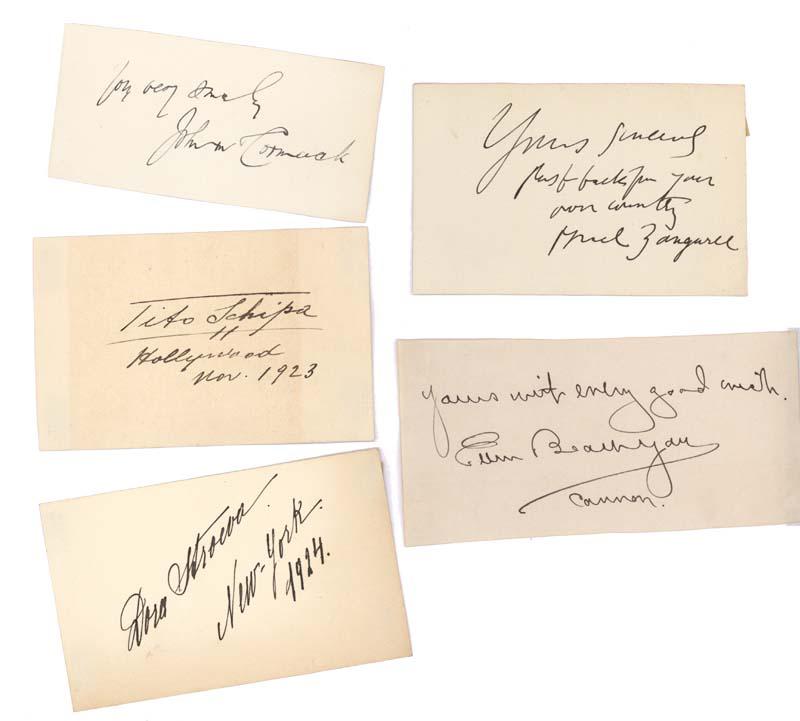 very
John McCormack
Tito Schipa
Hollywood
Nov. 1923
Dora Stroeva.
New-York.
1924.
Yours sincerely
your
own country
Israel Zangwill
Yours with every good wish.
Ellen Beach Yaw
Cannon.